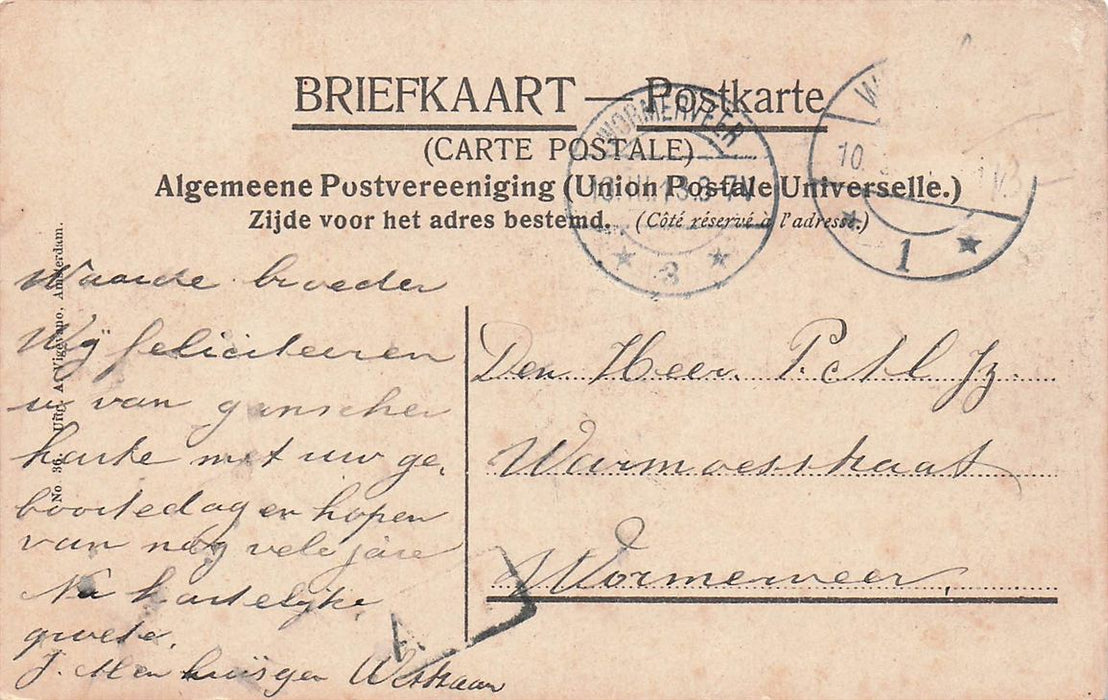 BRIEFKAART — Postkarte
(CARTE POSTALE)
Algemeene Postvereeniging (Union Postale Universelle.)
Zijde voor het adres bestemd. (Côté réservé à l'adresse.)
WORMERVEER
3
10.
1
No. 36. Uitg. A. Vigevano, Amsterdam.
Waarde broeder
Wij feliciteeren
u van ganscher
harte met uw ge
boortedag en hopen
van nog vele jare
Na hartelijke
groete.
J.
Den Heer P. Jz.
Warmoesstraat
Wormerveer